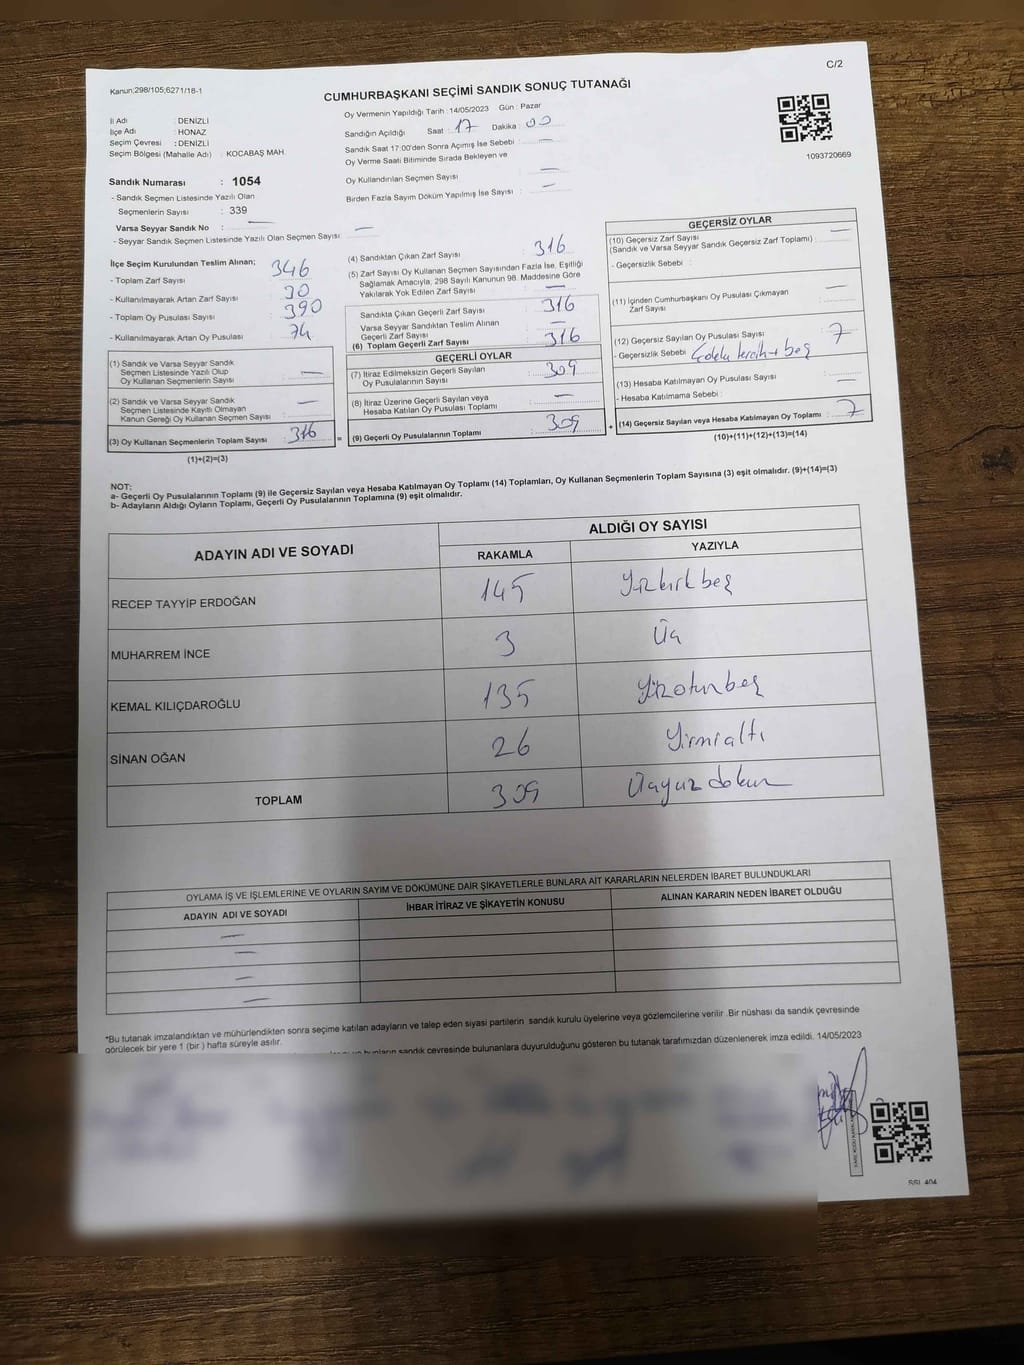 C/2
Kanun:298/105;6271/18-1
CUMHURBAŞKANI SEÇİMİ SANDIK SONUÇ TUTANAĞI
İl Adı : DENİZLİ
İlçe Adı : HONAZ
Seçim Çevresi : DENİZLİ
Seçim Bölgesi (Mahalle Adı) : KOCABAŞ MAH.
Sandık Numarası : 1054
- Sandık Seçmen Listesinde Yazılı Olan
Seçmenlerin Sayısı : 339
Varsa Seyyar Sandık No : —
- Seyyar Sandık Seçmen Listesinde Yazılı Olan Seçmen Sayısı: —
Oy Vermenin Yapıldığı Tarih : 14/05/2023 Gün : Pazar
Sandığın Açıldığı Saat : 17 Dakika : 00
Sandık Saat 17:00'den Sonra Açımış İse Sebebi : —
Oy Verme Saati Bitiminde Sırada Bekleyen ve
Oy Kullandırılan Seçmen Sayısı : —
Birden Fazla Sayım Döküm Yapılmış İse Sayısı : —
1093720669
İlçe Seçim Kurulundan Teslim Alınan;
- Toplam Zarf Sayısı : 346
- Kullanılmayarak Artan Zarf Sayısı : 30
- Toplam Oy Pusulası Sayısı : 390
- Kullanılmayarak Artan Oy Pusulası : 74
(1) Sandık ve Varsa Seyyar Sandık
Seçmen Listesinde Yazılı Olup
Oy Kullanan Seçmenlerin Sayısı : —
(2) Sandık ve Varsa Seyyar Sandık
Seçmen Listesinde Kayıtlı Olmayan
Kanun Gereği Oy Kullanan Seçmen Sayısı : —
(3) Oy Kullanan Seçmenlerin Toplam Sayısı : 316 =
(1)+(2)=(3)
(4) Sandıktan Çıkan Zarf Sayısı : 316
(5) Zarf Sayısı Oy Kullanan Seçmen Sayısından Fazla İse, Eşitliği
Sağlamak Amacıyla, 298 Sayılı Kanunun 98. Maddesine Göre
Yakılarak Yok Edilen Zarf Sayısı : —
Sandıkta Çıkan Geçerli Zarf Sayısı : 316
Varsa Seyyar Sandıktan Teslim Alınan
Geçerli Zarf Sayısı : —
(6) Toplam Geçerli Zarf Sayısı : 316
GEÇERLİ OYLAR
(7) İtiraz Edilmeksizin Geçerli Sayılan
Oy Pusulalarının Sayısı : 309
(8) İtiraz Üzerine Geçerli Sayılan veya
Hesaba Katılan Oy Pusulası Toplamı : —
(9) Geçerli Oy Pusulalarının Toplamı : 309 +
GEÇERSİZ OYLAR
(10) Geçersiz Zarf Sayısı
(Sandık ve Varsa Seyyar Sandık Geçersiz Zarf Toplamı) : —
- Geçersizlik Sebebi :
(11) İçinden Cumhurbaşkanı Oy Pusulası Çıkmayan
Zarf Sayısı : —
(12) Geçersiz Sayılan Oy Pusulası Sayısı : 7
- Geçersizlik Sebebi
(13) Hesaba Katılmayan Oy Pusulası Sayısı : —
- Hesaba Katılmama Sebebi :
(14) Geçersiz Sayılan veya Hesaba Katılmayan Oy Toplamı : 7
(10)+(11)+(12)+(13)=(14)
NOT:
a- Geçerli Oy Pusulalarının Toplamı (9) ile Geçersiz Sayılan veya Hesaba Katılmayan Oy Toplamı (14) Toplamları, Oy Kullanan Seçmenlerin Toplam Sayısına (3) eşit olmalıdır. (9)+(14)=(3)
b- Adayların Aldığı Oyların Toplamı, Geçerli Oy Pusulalarının Toplamına (9) eşit olmalıdır.
ADAYIN ADI VE SOYADI ALDIĞI OY SAYISI
RAKAMLA YAZIYLA
RECEP TAYYİP ERDOĞAN 145 Yüzkırkbeş
MUHARREM İNCE 3 Üç
KEMAL KILIÇDAROĞLU 135 Yüzotuzbeş
SİNAN OĞAN 26 Yirmialtı
TOPLAM 309 Üçyüzdokuz
OYLAMA İŞ VE İŞLEMLERİNE VE OYLARIN SAYIM VE DÖKÜMÜNE DAİR ŞİKAYETLERLE BUNLARA AİT KARARLARIN NELERDEN İBARET BULUNDUKLARI
ADAYIN ADI VE SOYADI İHBAR İTİRAZ VE ŞİKAYETİN KONUSU ALINAN KARARIN NEDEN İBARET OLDUĞU
—
—
—
—
*Bu tutanak imzalandıktan ve mühürlendikten sonra seçime katılan adayların ve talep eden siyasi partilerin sandık kurulu üyelerine veya gözlemcilerine verilir .Bir nüshası da sandık çevresinde
görülecek bir yere 1 (bir ) hafta süreyle asılır.
bunların sandık çevresinde bulunanlara duyurulduğunu gösteren bu tutanak tarafımızdan düzenlenerek imza edildi. 14/05/2023